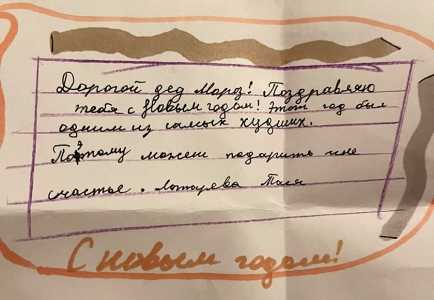 Дорогой дед Мороз! Поздравляю
тебя с Новым годом! Этот год был
одним из самых худших.
Поэтому может подарить мне
счастье. Лотарева Тася
С новым годом!